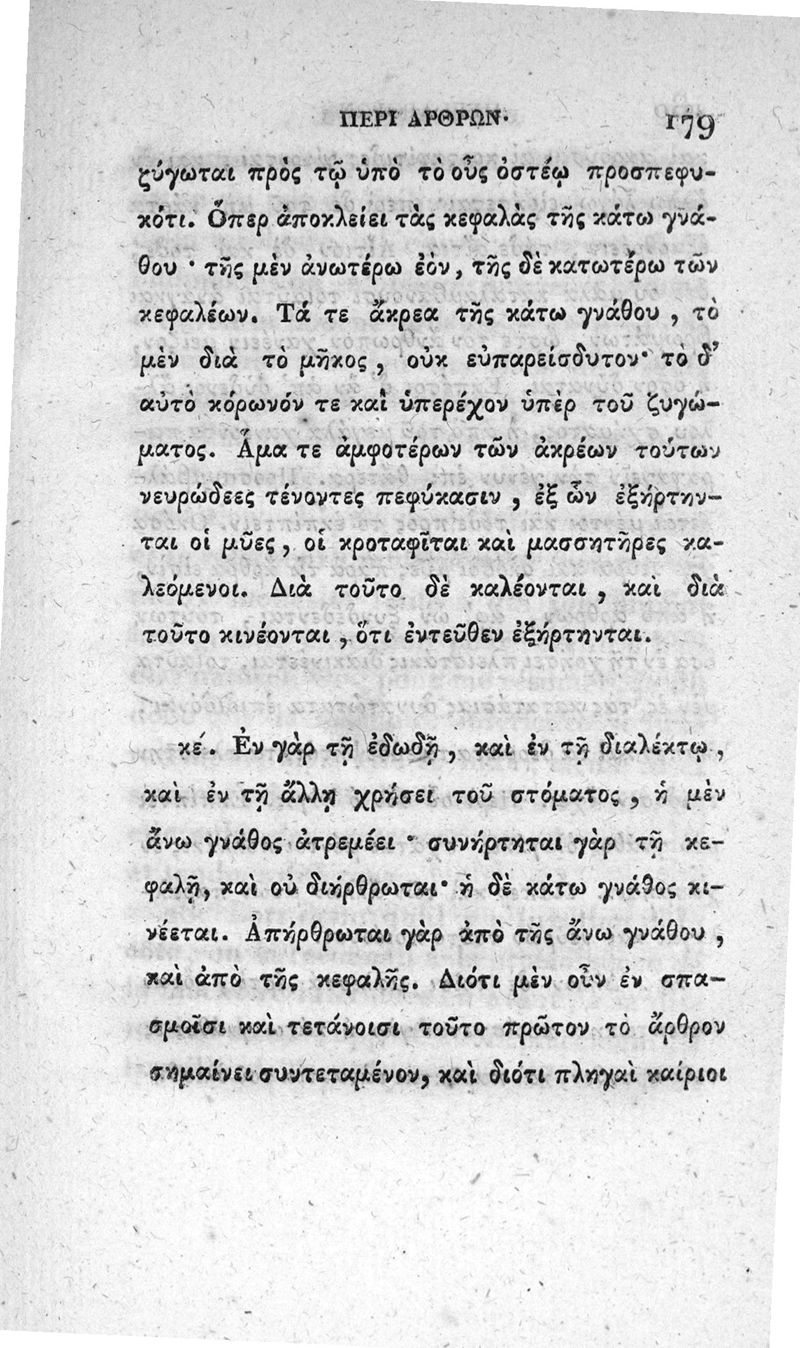 ΠΕΡΙ ΑΡΘΡΩΝ. 179
ζύγωται πρὸς τῷ ὑπὸ τὸ οὖς ὀστέῳ προσπεφυ-
κότι. Ὅπερ ἀποκλείει τὰς κεφαλὰς τῆς κάτω γνά-
θου · τῆς μὲν ἀνωτέρω ἐὸν, τῆς δὲ κατωτέρω τῶν
κεφαλέων. Τά τε ἄκρεα τῆς κάτω γνάθου , τὸ
μὲν διὰ τὸ μῆκος , οὐκ εὐπαρείσδυτον· τὸ δ'
αὐτὸ κόρωνόν τε καὶ ὑπερέχον ὑπὲρ τοῦ ζυγώ-
ματος. Ἅμα τε ἀμφοτέρων τῶν ἀκρέων τούτων
νευρώδεες τένοντες πεφύκασιν , ἐξ ὧν ἐξήρτην-
ται οἱ μῦες , οἱ κροταφῖται καὶ μασσητῆρες κα-
λεόμενοι. Διὰ τοῦτο δὲ καλέονται , καὶ διὰ
τοῦτο κινέονται , ὅτι ἐντεῦθεν ἐξήρτηνται.
κέ. Ἐν γὰρ τῇ ἐδωδῇ , καὶ ἐν τῇ διαλέκτῳ ,
καὶ ἐν τῇ ἄλλῃ χρήσει τοῦ στόματος , ἡ μὲν
ἄνω γνάθος ἀτρεμέει · συνήρτηται γὰρ τῇ κε-
φαλῇ, καὶ οὐ διήρθρωται· ἡ δὲ κάτω γνάθος κι-
νέεται. Ἀπήρθρωται γὰρ ἀπὸ τῆς ἄνω γνάθου ,
καὶ ἀπὸ τῆς κεφαλῆς. Διότι μὲν οὖν ἐν σπα-
σμοῖσι καὶ τετάνοισι τοῦτο πρῶτον τὸ ἄρθρον
σημαίνει συντεταμένον, καὶ διότι πληγαὶ καίριοι